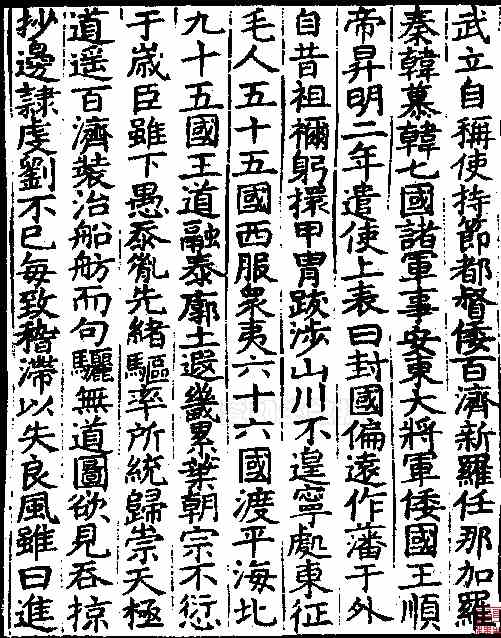 武立自稱使持節都督倭百濟新羅任那加羅
秦韓慕韓七國諸軍事安東大將軍倭國王順
帝昇明二年遣使上表曰封國偏遠作藩于外
自昔祖禰躬擐甲冑跋涉山川不遑寧處東征
毛人五十五國西服衆夷六十六國渡平海北
九十五國王道融泰廓土遐畿累葉朝宗不愆
于歲臣雖下愚忝胤先緒驅率所統歸崇天極
道遥百濟裝治船舫而句驪無道圖欲見吞掠
抄邊隷虔劉不已每致稽滯以失良風雖曰進